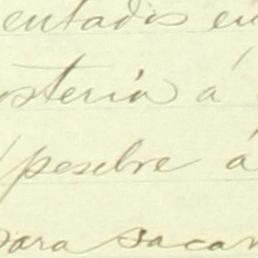 entados en
osteria á
pesebre á
para sacar